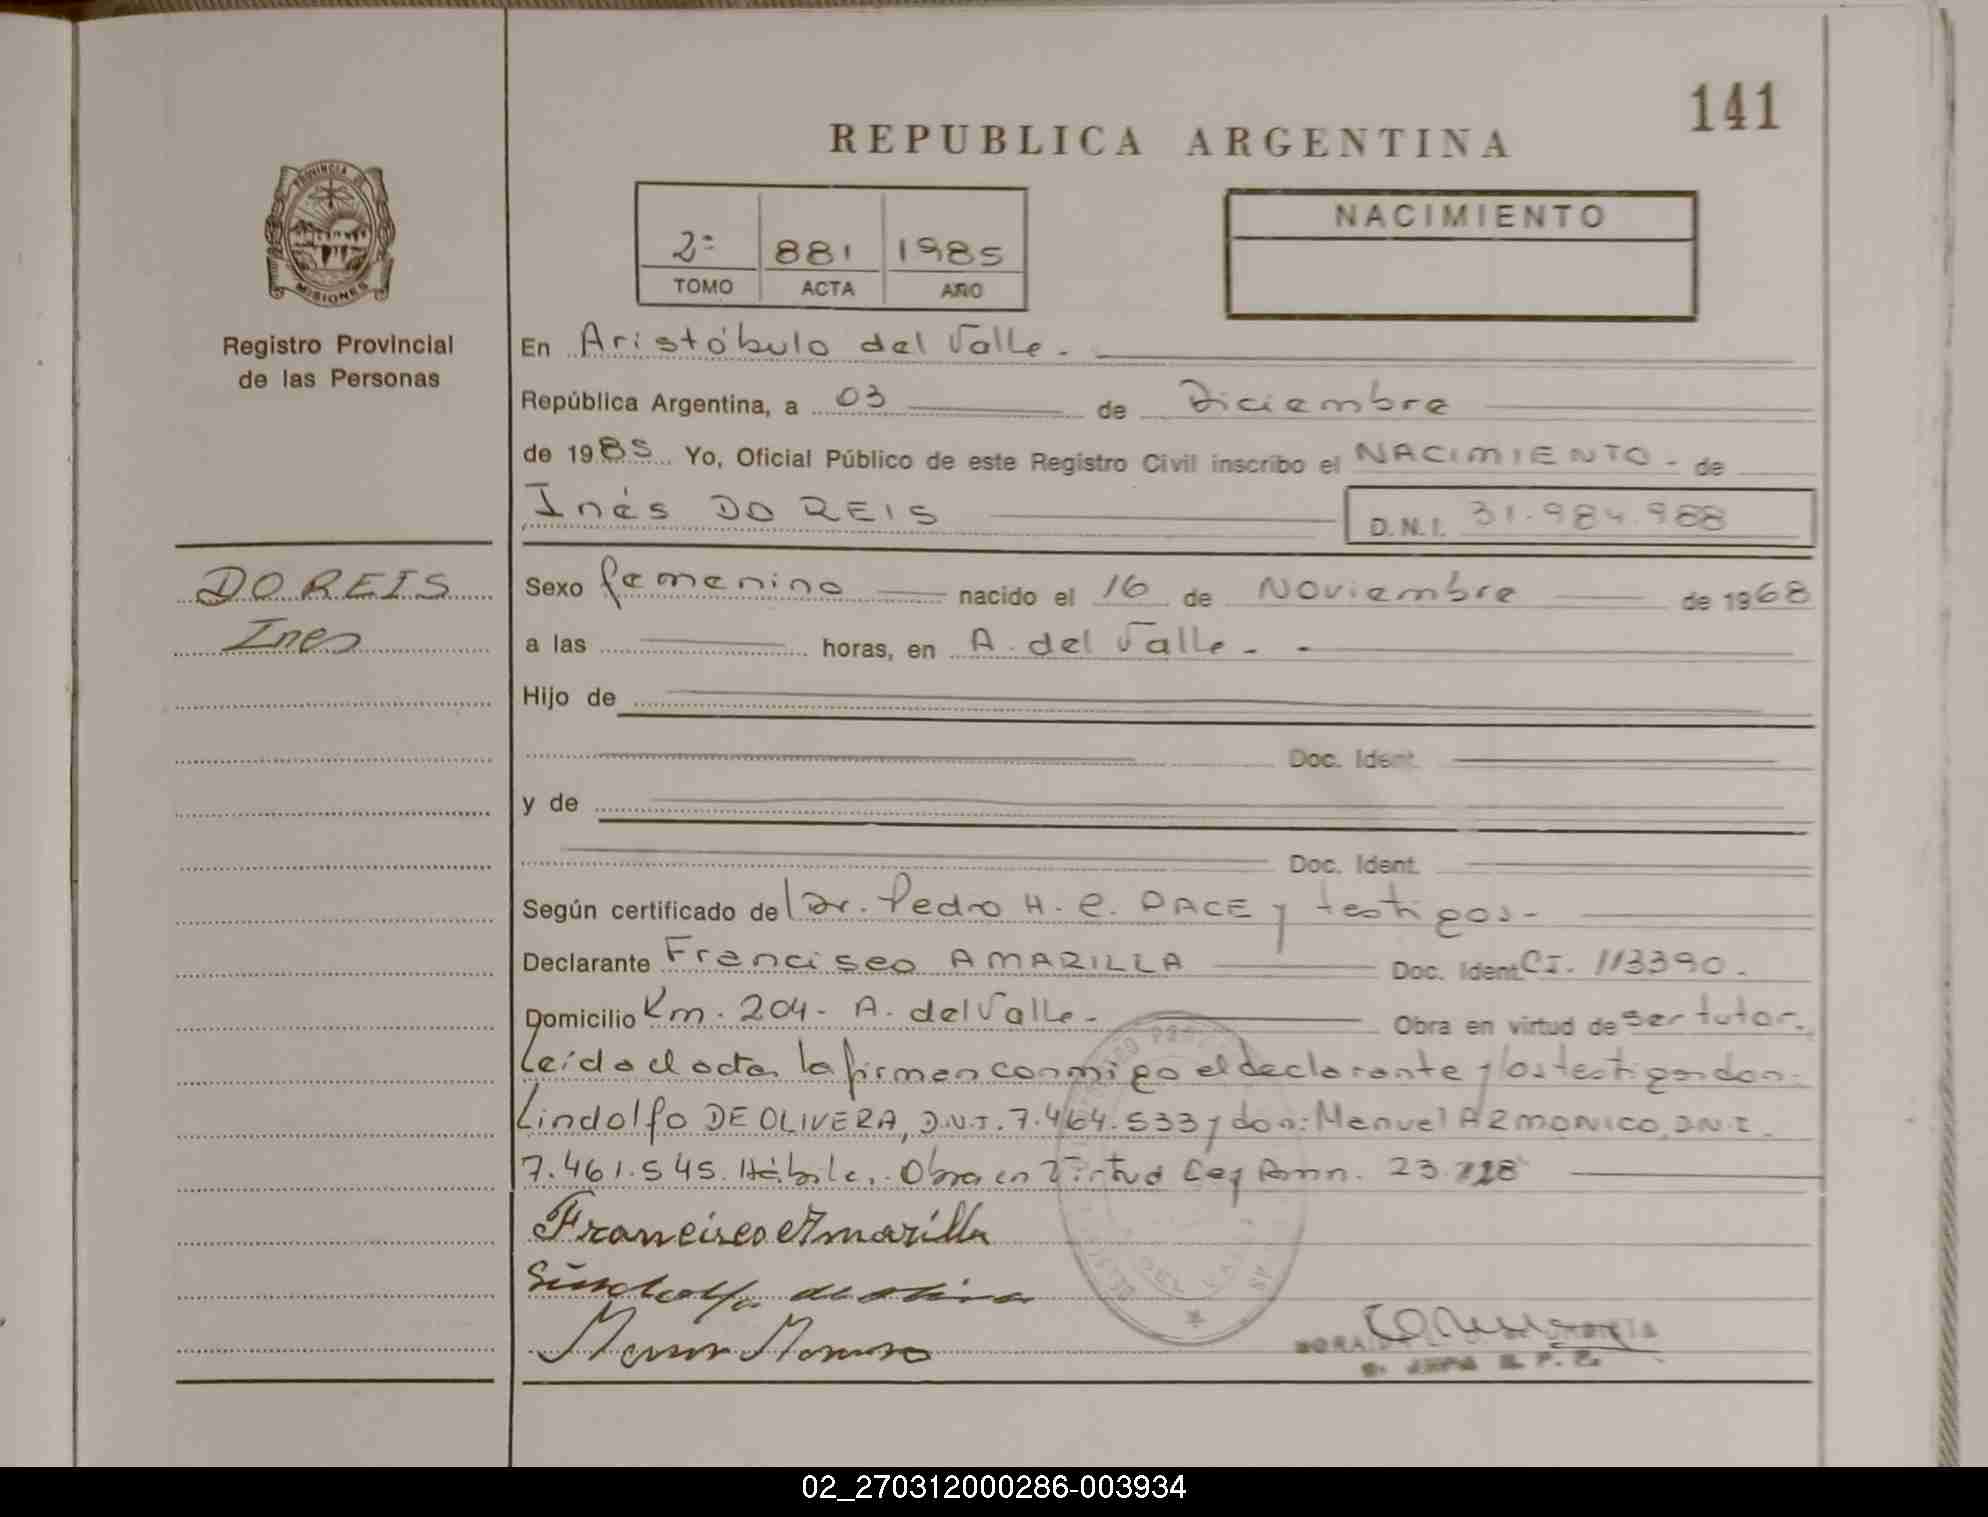 141
REPUBLICA ARGENTINA
PROVINCIA DE
MISIONES
Registro Provincial
de las Personas
2º 881 1985
TOMO ACTA AÑO
NACIMIENTO
En Aristóbulo del Valle.-
República Argentina, a 03 de Diciembre
de 1985 Yo, Oficial Público de este Registro Civil inscribo el NACIMIENTO - de
Inés DO REIS D.N.I. 31.984.988
DO REIS
Ines
Sexo femenino nacido el 16 de Noviembre de 1968
a las horas, en A. del Valle. -
Hijo de
Doc. Ident.
y de
Doc. Ident.
Según certificado de Dr. Pedro H. C. PACE y testigos-
Declarante Francisco AMARILLA Doc. Ident. CI. 113390.
Domicilio Km. 204- A. del Valle- Obra en virtud de ser tutor.
Leída el acta, la firman conmigo el declarante y los testigos don-
Lindolfo DE OLIVERA, D.N.I. 7.464.533 y don: Manuel ARMONICO, D.N.I.
7.461.545. Hábiles. Obra en Virtud Ley Amn. 23.
Francisco Amarilla
02_270312000286-003934